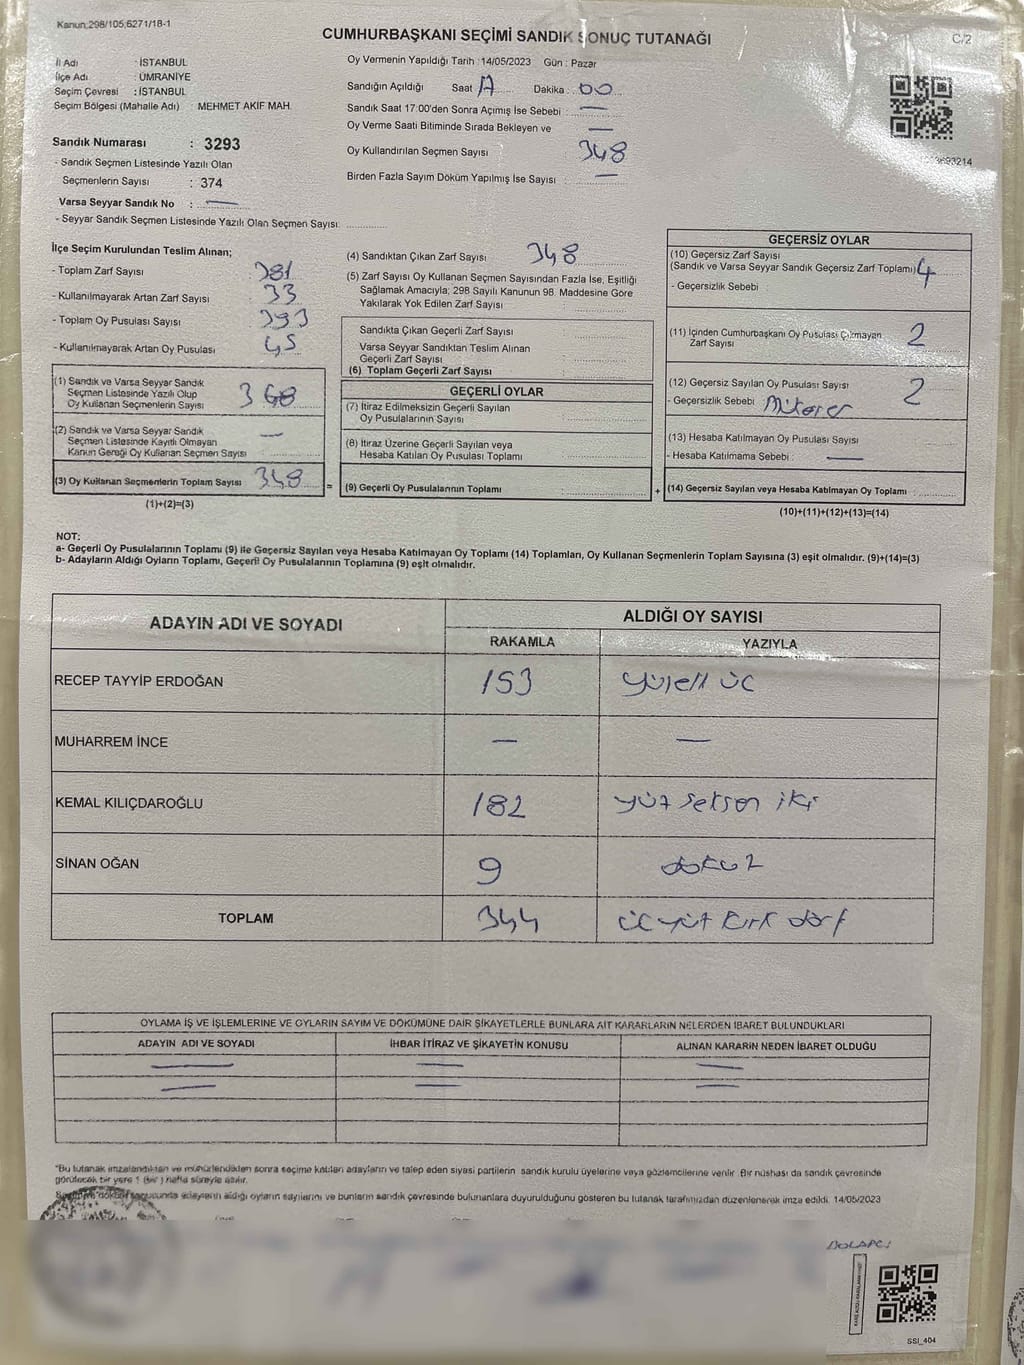 Kanun;298/105;6271/18-1
CUMHURBAŞKANI SEÇİMİ SANDIK SONUÇ TUTANAĞI
C/2
İl Adı : İSTANBUL
İlçe Adı : ÜMRANİYE
Seçim Çevresi : İSTANBUL
Seçim Bölgesi (Mahalle Adı) : MEHMET AKİF MAH.
Sandık Numarası : 3293
- Sandık Seçmen Listesinde Yazılı Olan
Seçmenlerin Sayısı : 374
Varsa Seyyar Sandık No : —
- Seyyar Sandık Seçmen Listesinde Yazılı Olan Seçmen Sayısı:
Oy Vermenin Yapıldığı Tarih : 14/05/2023 Gün : Pazar
Sandığın Açıldığı Saat Dakika : 00
Sandık Saat 17:00'den Sonra Açımış İse Sebebi : —
Oy Verme Saati Bitiminde Sırada Bekleyen ve —
Oy Kullandırılan Seçmen Sayısı 348
Birden Fazla Sayım Döküm Yapılmış İse Sayısı : —
İlçe Seçim Kurulundan Teslim Alınan;
- Toplam Zarf Sayısı 381
- Kullanılmayarak Artan Zarf Sayısı 33
- Toplam Oy Pusulası Sayısı 393
- Kullanılmayarak Artan Oy Pusulası 45
(1) Sandık ve Varsa Seyyar Sandık
Seçmen Listesinde Yazılı Olup
Oy Kullanan Seçmenlerin Sayısı
(2) Sandık ve Varsa Seyyar Sandık
Seçmen Listesinde Kayıtlı Olmayan
Kanun Gereği Oy Kullanan Seçmen Sayısı —
(3) Oy Kullanan Seçmenlerin Toplam Sayısı 348 =
(1)+(2)=(3)
(4) Sandıktan Çıkan Zarf Sayısı 348
(5) Zarf Sayısı Oy Kullanan Seçmen Sayısından Fazla İse, Eşitliği
Sağlamak Amacıyla; 298 Sayılı Kanunun 98. Maddesine Göre
Yakılarak Yok Edilen Zarf Sayısı
Sandıkta Çıkan Geçerli Zarf Sayısı
Varsa Seyyar Sandıktan Teslim Alınan
Geçerli Zarf Sayısı
(6) Toplam Geçerli Zarf Sayısı
GEÇERLİ OYLAR
(7) İtiraz Edilmeksizin Geçerli Sayılan
Oy Pusulalarının Sayısı
(8) İtiraz Üzerine Geçerli Sayılan veya
Hesaba Katılan Oy Pusulası Toplamı
(9) Geçerli Oy Pusulalarının Toplamı +
GEÇERSİZ OYLAR
(10) Geçersiz Zarf Sayısı
(Sandık ve Varsa Seyyar Sandık Geçersiz Zarf Toplamı) 4
- Geçersizlik Sebebi
(11) İçinden Cumhurbaşkanı Oy Pusulası Çıkmayan
Zarf Sayısı 2
(12) Geçersiz Sayılan Oy Pusulası Sayısı 2
- Geçersizlik Sebebi
(13) Hesaba Katılmayan Oy Pusulası Sayısı
- Hesaba Katılmama Sebebi : —
(14) Geçersiz Sayılan veya Hesaba Katılmayan Oy Toplamı :
(10)+(11)+(12)+(13)=(14)
NOT:
a- Geçerli Oy Pusulalarının Toplamı (9) ile Geçersiz Sayılan veya Hesaba Katılmayan Oy Toplamı (14) Toplamları, Oy Kullanan Seçmenlerin Toplam Sayısına (3) eşit olmalıdır. (9)+(14)=(3)
b- Adayların Aldığı Oyların Toplamı, Geçerli Oy Pusulalarının Toplamına (9) eşit olmalıdır.
ADAYIN ADI VE SOYADI ALDIĞI OY SAYISI
RAKAMLA YAZIYLA
RECEP TAYYİP ERDOĞAN 153 yüzelli üç
MUHARREM İNCE — —
KEMAL KILIÇDAROĞLU 182 yüz seksen iki
SİNAN OĞAN 9 dokuz
TOPLAM 344 üç yüz kırk dört
OYLAMA İŞ VE İŞLEMLERİNE VE OYLARIN SAYIM VE DÖKÜMÜNE DAİR ŞİKAYETLERLE BUNLARA AİT KARARLARIN NELERDEN İBARET BULUNDUKLARI
ADAYIN ADI VE SOYADI İHBAR İTİRAZ VE ŞİKAYETİN KONUSU ALINAN KARARIN NEDEN İBARET OLDUĞU
— — —
— — —
*Bu tutanak imzalandıktan ve mühürlendikten sonra seçime katılan adayların ve talep eden siyasi partilerin sandık kurulu üyelerine veya gözlemcilerine verilir. Bir nüshası da sandık çevresinde
görülecek bir yere 1 (Bir) hafta süreyle asılır.
Seçim ve döküm sonucunda adayların aldığı oyların sayılarını ve bunların sandık çevresinde bulunanlara duyurulduğunu gösteren bu tutanak tarafımızdan düzenlenerek imza edildi. 14/05/2023
SSI_404